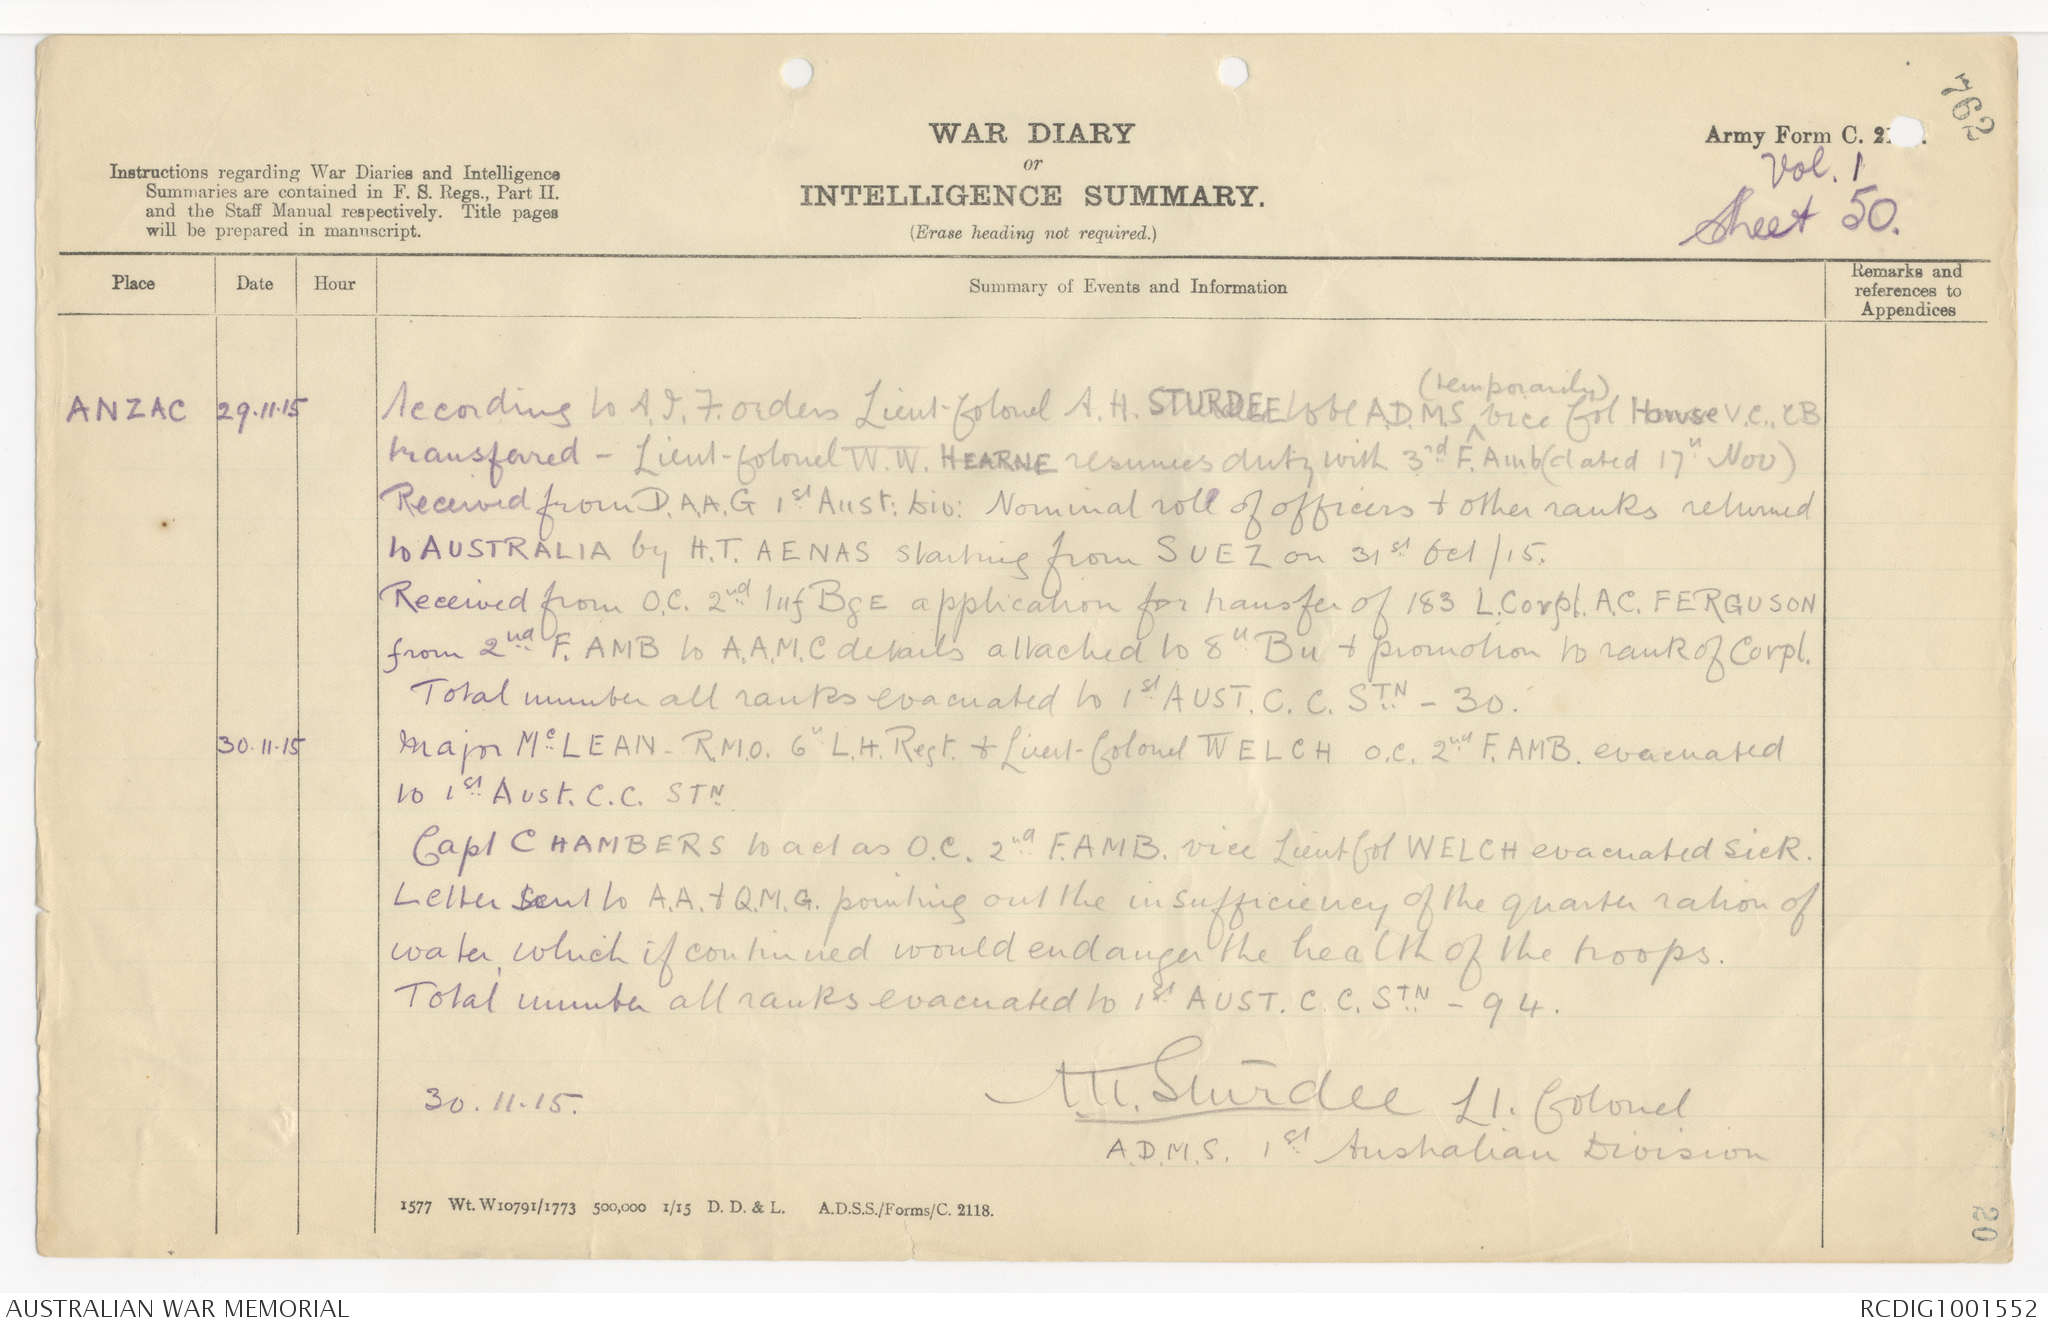 762
WAR DIARY
or
INTELLIGENCE SUMMARY.
(Erase heading not required.)
Army Form C. 21
Vol. 1
Sheet 50.
Instructions regarding War Diaries and Intelligence
Summaries are contained in F. S. Regs., Part II.
and the Staff Manual respectively. Title pages
will be prepared in manuscript.
Place Date Hour Summary of Events and Information Remarks and references to Appendices
(temporarily)
ANZAC 29.11.15 According to A.I.F. orders Lieut-Colonel A. H. STURDEE to be A.D.M.S. vice Col Howse V.C., CB
transferred - Lieut-Colonel W.W. HEARNE resumes duty with 3rd F. Amb (dated 17th Nov)
Received from D.A.A.G 1st Aust: Div: Nominal roll of officers + other ranks returned
to AUSTRALIA by H.T. AENAS starting from SUEZ on 31st Oct/15.
Received from O.C. 2nd Inf BgE application for transfer of 183 L.Corpl. A.C. FERGUSON
from 2nd F. AMB to A.A.M.C details attached to 8th Bn + promotion to rank of Corpl.
Total number all ranks evacuated to 1st AUST. C. C. STN - 30.
30.11.15 Major McLEAN - R.M.O. 6th L.H. Regt. + Lieut-Colonel WELCH O.C. 2nd F. AMB. evacuated
to 1st Aust. C.C. STN
Capt CHAMBERS to act as O.C. 2nd F. AMB. vice Lieut Col WELCH evacuated sick.
Letter sent to A.A. + Q.M.G. pointing out the insufficiency of the quarter ration of
water, which if continued would endanger the health of the troops.
Total number all ranks evacuated to 1st AUST. C. C. STN - 94.
30.11.15. A.H. Sturdee Lt. Colonel
A.D.M.S. 1st Australian Division
1577 Wt. W10791/1773 500,000 1/15 D. D. & L. A.D.S.S./Forms/C. 2118.
20
AUSTRALIAN WAR MEMORIAL RCDIG1001552